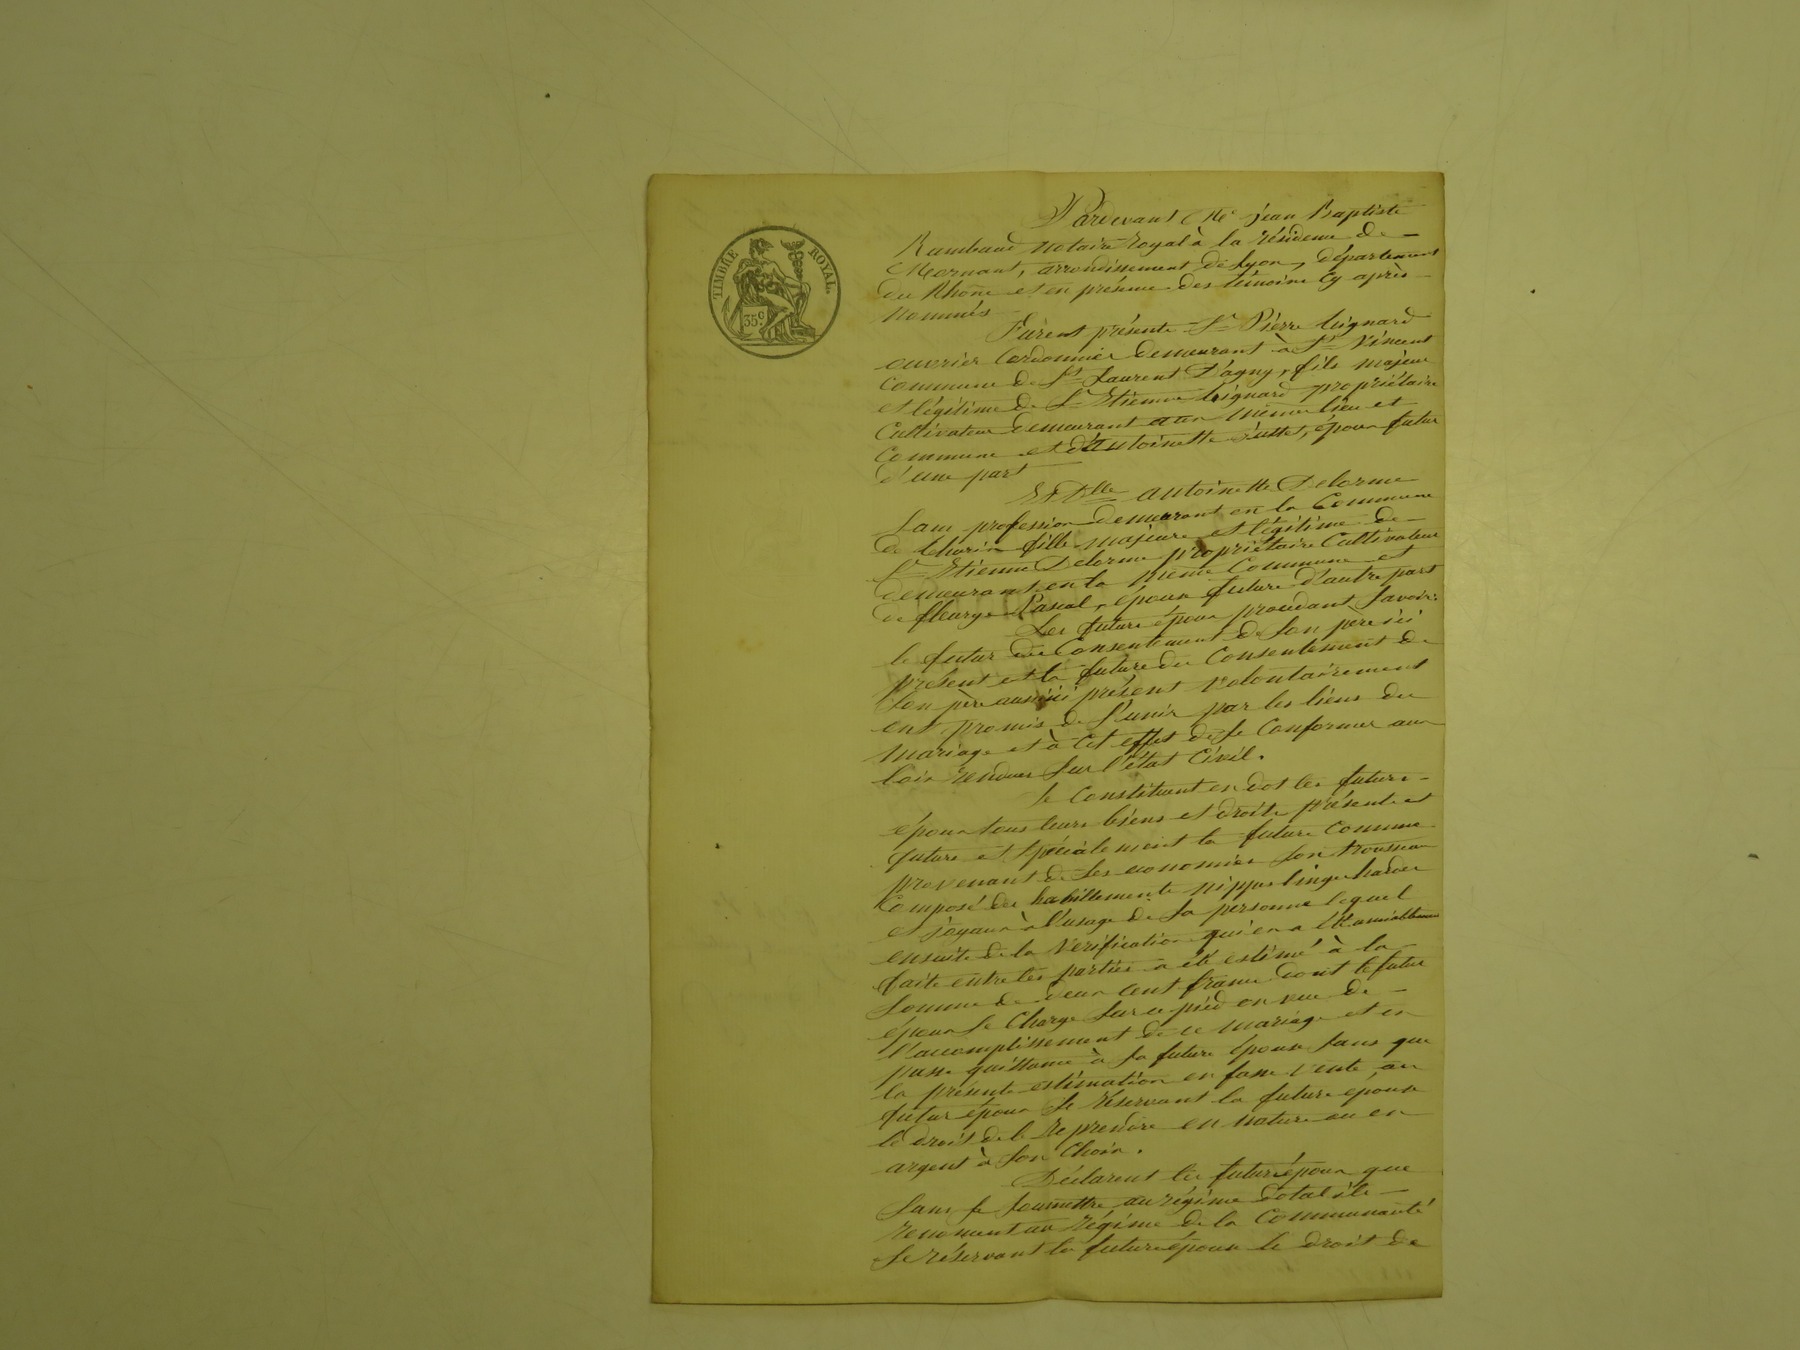 TIMBRE ROYAL.
35 c
Pardevant Me jean Baptiste
Rambaud Notaire royal à la résidence de
Mornant, arrondissement de Lyon, département
du Rhône et en présence des témoins cy après
nommés
Furent présents Sr Pierre Guignard
ouvrier Cordonnier demeurant à St Vincent
Commune de St Laurent D'agny, fils majeur
et légitime de Sr Etienne Guignard propriétaire
Cultivateur demeurant aux même lieu et
Commune et d'Antoinette, époux futur
d'une part
Et Dlle Antoinette Delorme
Sans profession demeurant en la Commune
de fille majeure et légitime de
Sr Etienne Delorme propriétaire Cultivateur
demeurant en la même Commune et
de fleurye Pascal, épouse future d'autre part
Les futurs époux procedant Savoir:
le futur du Consentement de Son père ici
présent et la future du Consentement de
Son père aussi ici présent volontairement
ont promis de S'unir par les liens du
mariage et à cet effet de se Conformer aux
loix rendues Sur l'état Civil.
Se Constituent en dot les futurs
époux tous leurs biens et droits présents et
futurs et Spécialement la future Comme
provenant de Ses economies Son trousseau
Composé des habillements nippes linges hardes
et joyaux à l'usage de Sa personne lequel
ensuite de la Vérification qui en a été amiablement
faite entre les parties a été estimé à la
Somme de deux cent francs dont le futur
époux Se Charge Sur ce pied en vue de
l'accomplissement de ce mariage et en
passe quittance à Sa future épouse Sans que
la présente estimation en fasse vente au
futur époux Se réservant la future épouse
le droit de le reprendre en nature ou en
argent à Son Choix.
Déclarent les futurs époux que
Sans se Soumettre au régime dotal ils
renoncent au régime de la Communauté
Se réservant la future épouse le droit de